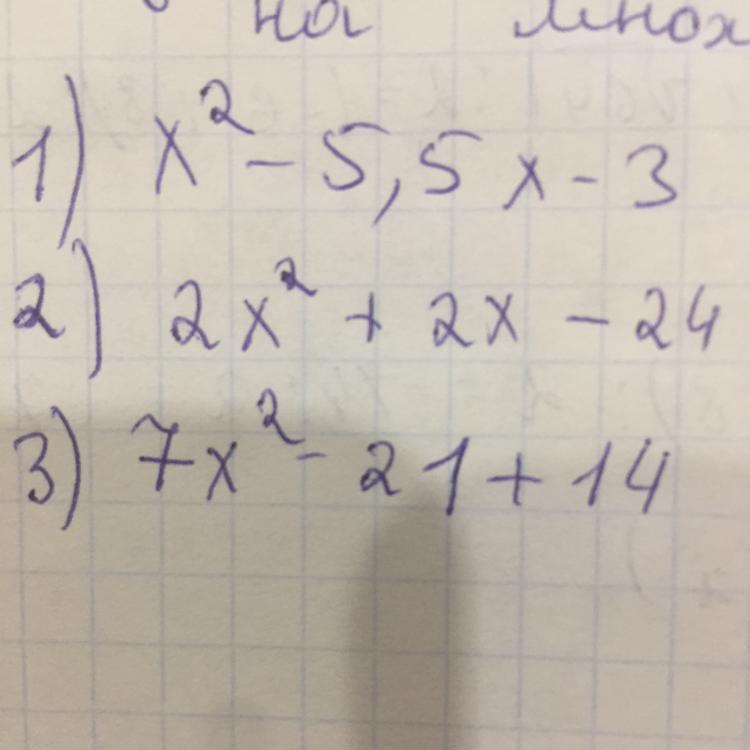 на
1) x² - 5,5x - 3
2) 2x² + 2x - 24
3) 7x² - 21 + 14